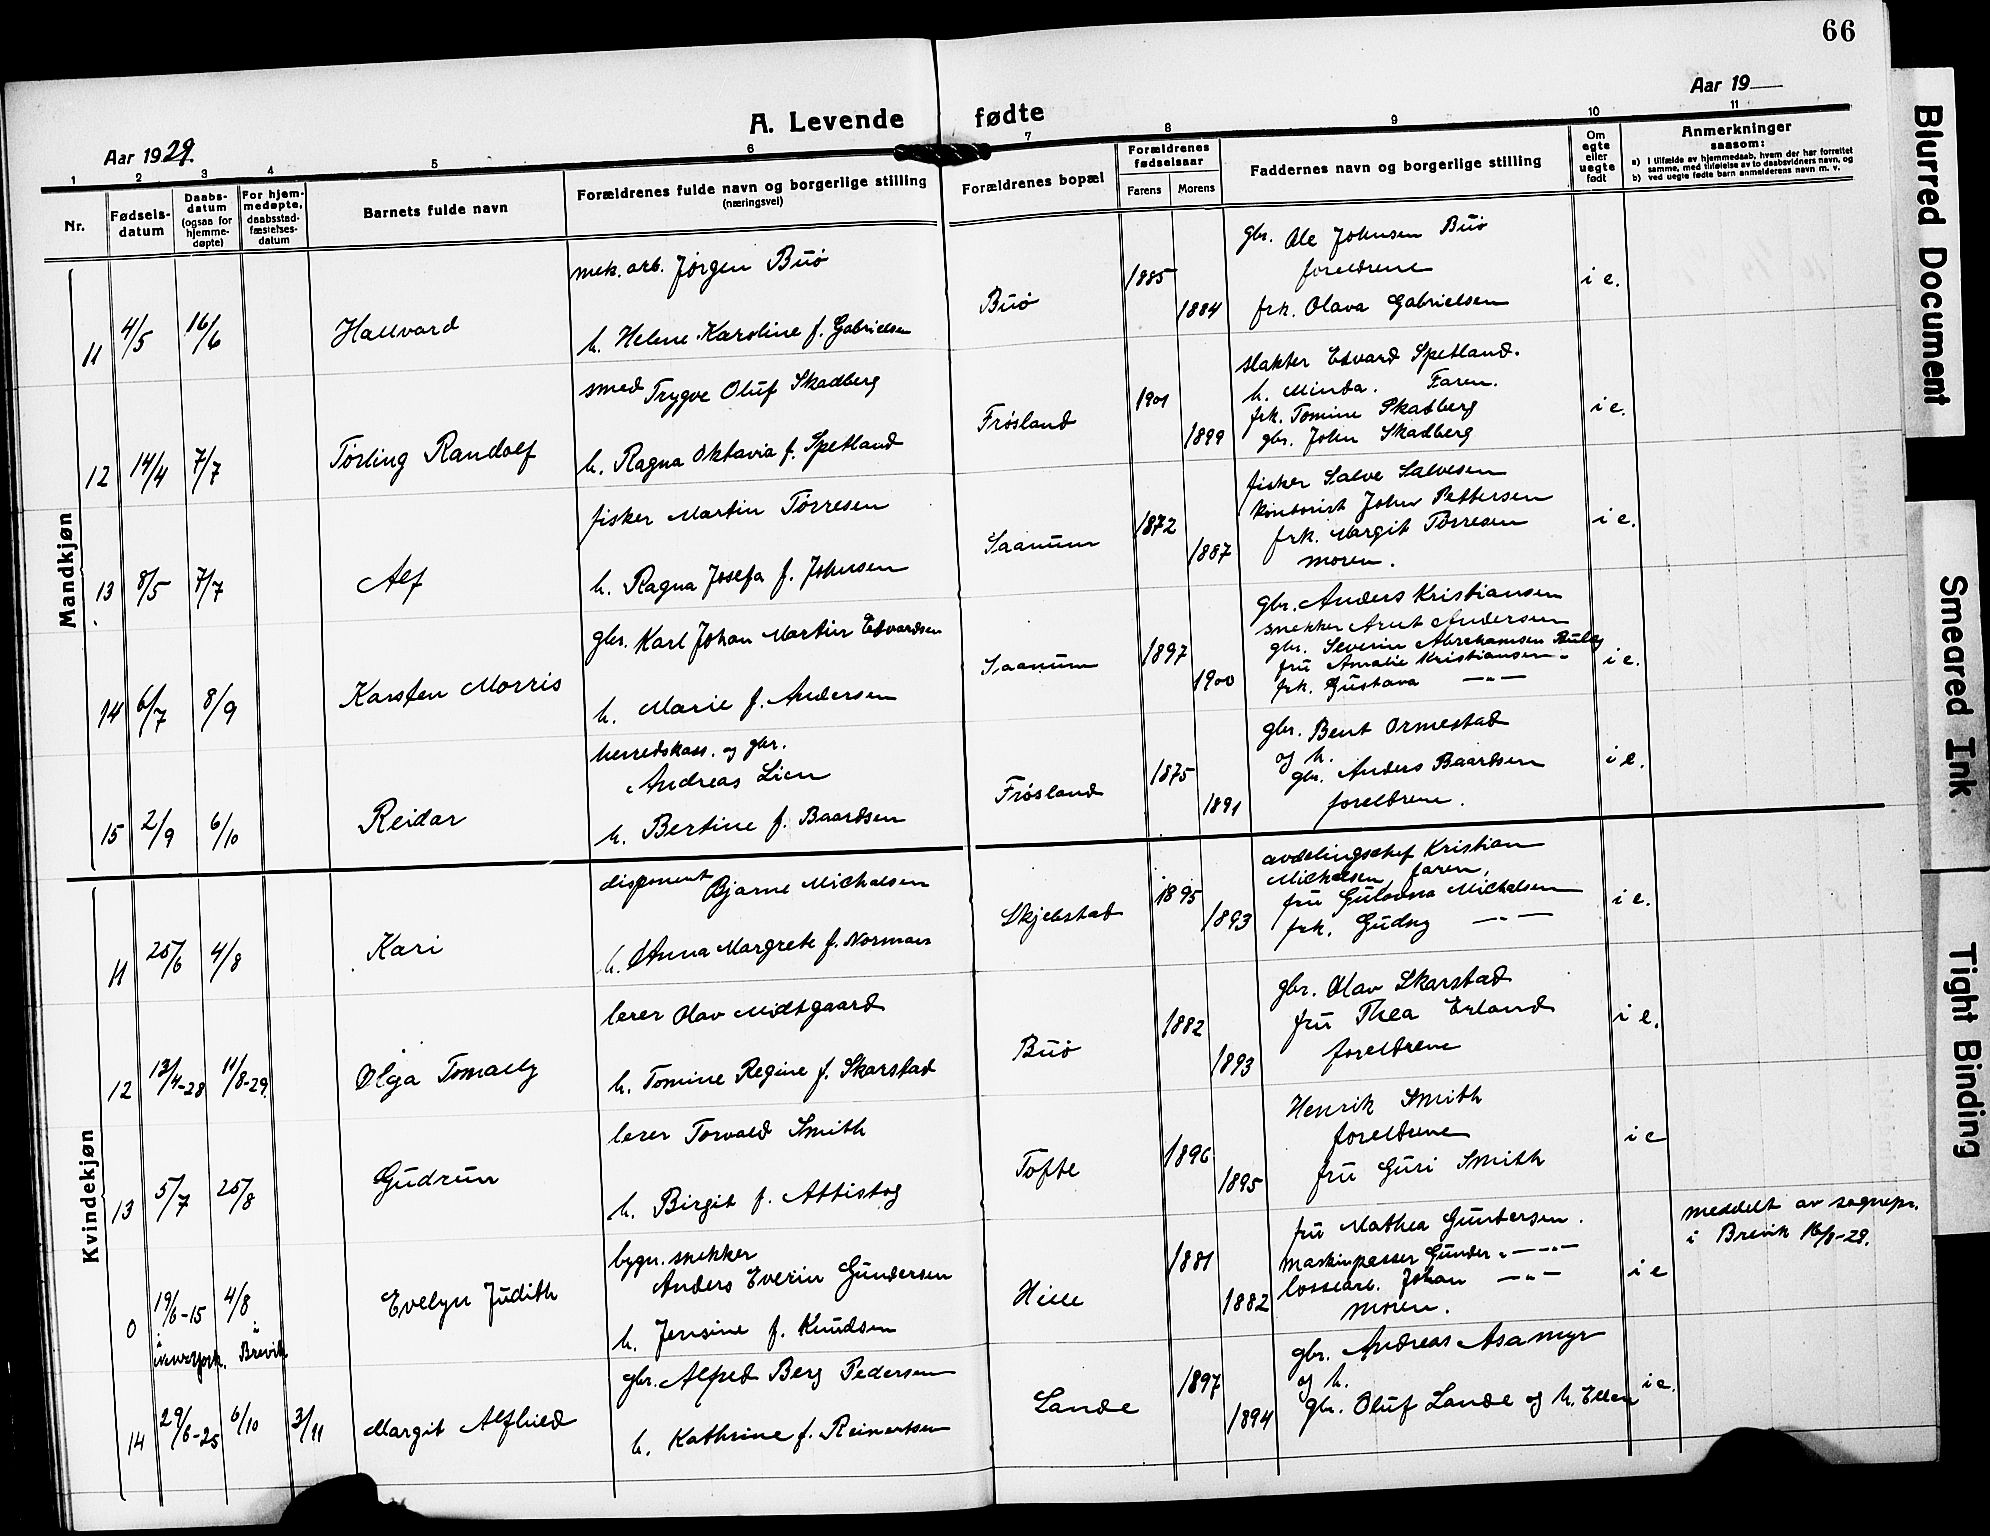 66
Aar 19
A. Levende fødte
Aar 1929.
1 2 3 4 5 6 7 8 9 10 11
Nr.
Fødsels-
datum
Daabs-
datum
(ogsaa for
hjemme-
døpte)
For hjem-
medøpte,
daabsstad-
fæstelses-
datum
Barnets fulde navn
Forældrenes fulde navn og borgerlige stilling
(næringsvei)
Forældrenes bopæl
Forældrenes
fødselsaar
Farens Morens
Faddernes navn og borgerlige stilling
Om
egte
eller
uegte
født
Anmerkninger
saasom:
a) i tilfælde av hjemmedaab, hvem der har forrettet
samme, med tilføielse av to daabsvidners navn, og
b) ved uegte fødte barn anmelderens navn m. v.
Mandkjøn
11 4/5 16/6 Hallvard
mek. arb. Jørgen Buø
h. Helene Karoline f. Gabrielsen
Buø 1885 1884
gbr. Ole Johnsen Buø
foreldrene
frk. Olava Gabrielsen
i e.
12 14/4 7/7 Tørling Randolf
smed Trygve Oluf Skadberg
h. Ragna Oktavia f. Spetland
Frøsland 1901 1899
slakter Edvard Spetland.
h. Minda. Faren.
frk. Tomine Skadberg
gbr. John Skadberg
i e.
13 8/5 7/7 Alf
fisker Martin Tørresen
h. Ragna Josefa f. Johnsen
Saanum 1872 1887
fisker Salve Salvesen
kontorist John Pettersen
frk. Margit Tørresen
moren.
i e.
14 6/7 8/9 Karsten Morris
gbr. Karl Johan Martin Edvardsen
h. Marie f. Andersen
Saanum 1897 1900
gbr. Anders Kristiansen
snekker Arnt Andersen
gbr. Severin Abrahamsen
fru Amalie Kristiansen
frk. Gustava —"—
i e.
15 2/9 6/10 Reidar
herredskass. og gbr.
Andreas Lien
h. Bertine f. Baardsen
Frøsland 1875 1891
gbr. Bent Ormestad
og h.
gbr. Anders Baardsen
foreldrene.
i e.
Kvindekjøn
11 25/6 4/8 Kari
disponent Bjarne Michalsen
h. Anna Margrete f. Norman
Skjebstad 1895 1893
avdelingschef Kristian
Michalsen, faren,
fru Gulovna Michalsen
frk. Gudny —"—
i e.
12 13/4-28 11/8-29. Olga Tomally
lerer Olav Midtgaard
h. Tomine Regine f. Skarstad
Buø 1882 1893
gbr. Olav Skarstad
fru Thea Erland
foreldrene
i e.
13 5/7 25/8 Gudrun
lerer Torvald Smith
h. Birgit f. Attistog
Tofte 1896 1895
Henrik Smith
foreldrene
fru Guri Smith
i e
0 19/6-15 4/8
i New York. i Brevik
Evelyn Judith
bygn. snekker
Anders Everin Gundersen
h. Jensine f. Knudsen
Hille 1881 1882
fru Mathea Gundersen.
maskinpasser Gunder —"—
lossearb. Johan —"—
moren.
i e
meddelt av sognepr.
i Brevik 16/8-29.
14 29/6-25 6/10 3/11 Margit Alfhild
gbr. Alfred Berg Pedersen
h. Kathrine f. Reinertsen
Lande 1897 1894
gbr. Andreas Asamyr
og h.
gbr. Oluf Lande og h. Ellen
i e.
Blurred Document
Smeared Ink
Tight Binding